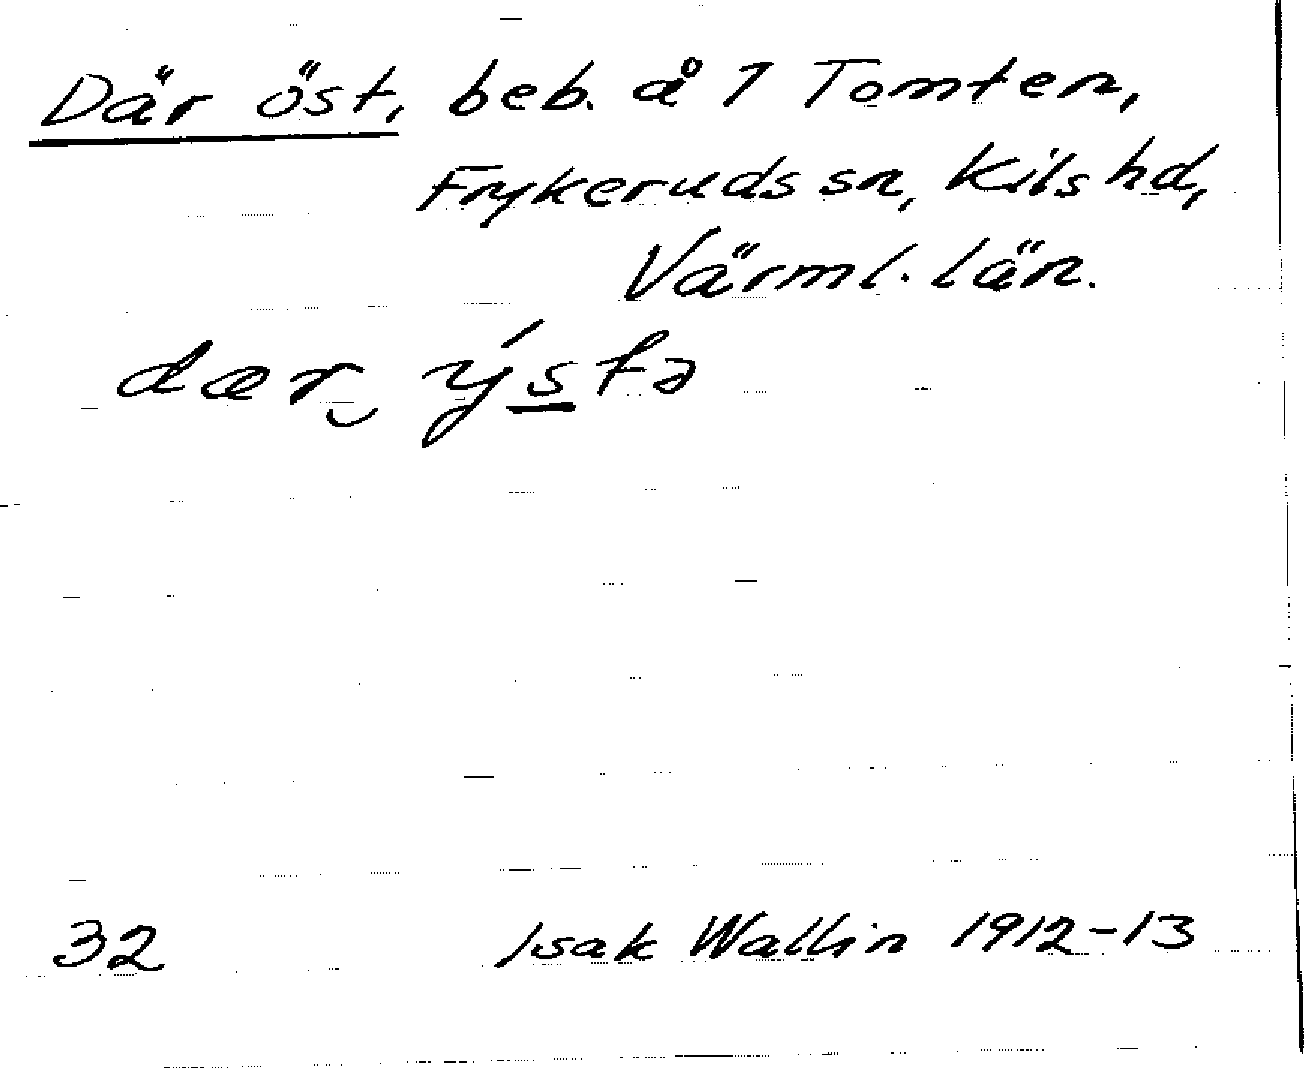 Där öst, beb. å 1 Tomten,
Frykeruds sn, Kils hd,
Värml. län.
dær‿ ýstə
32 Isak Wallin 1912-13